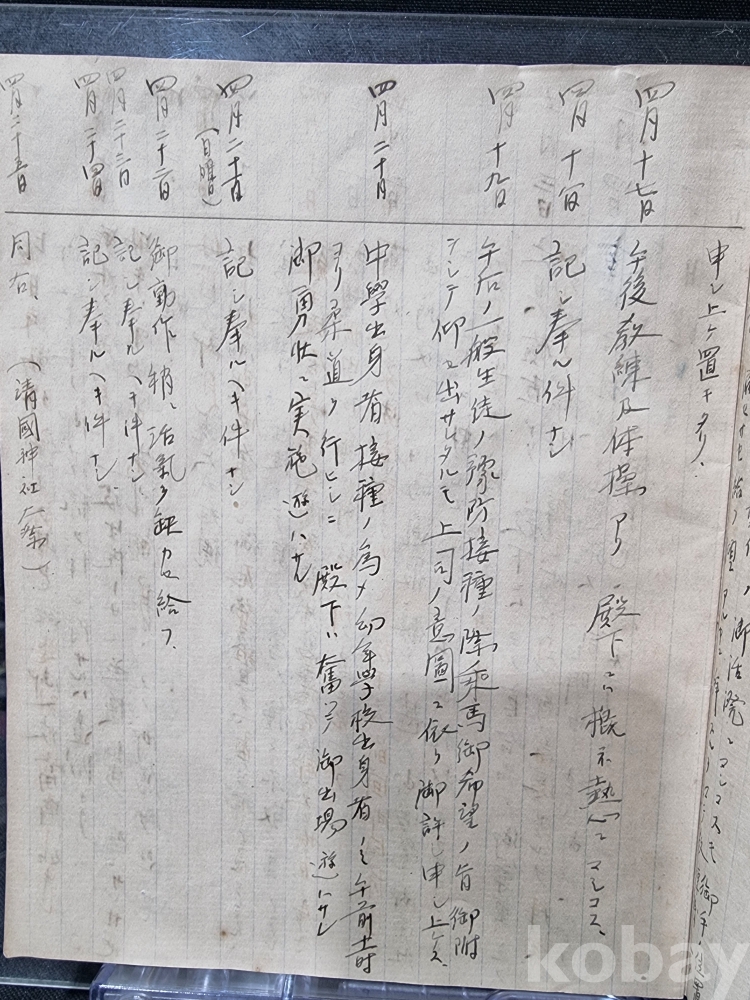 申シ上ケ置キタリ、
四月十七日 午後教練及体操アリ 殿下ニハ概ネ熱心ニマシマス、
四月十八日 記シ奉ルヘキ件ナシ
四月十九日 午后ノ一般生徒ノ豫防接種ノ際乘馬御希望ノ旨御附
シテ仰セ出サレタルモ上司ノ意圖ニ依リ御許シ申シ上ケス
四月二十日 中學出身者接種ノ為メ幼年學校出身者ノミ午前十一時
ヨリ柔道ヲ行ヒシニ 殿下ハ奮ツテ御出場遊ハサレ
御勇壯ニ実施遊ハサル
四月二十一日(日曜日) 記シ奉ルヘキ件ナシ。
四月二十二日 御動作稍〻活氣ヲ缺カセ給フ、
四月二十三日 記シ奉ルヘキ件ナシ、
四月二十四日 記シ奉ルヘキ件ナシ、
四月二十五日 同右、(靖國神社祭)
kobay